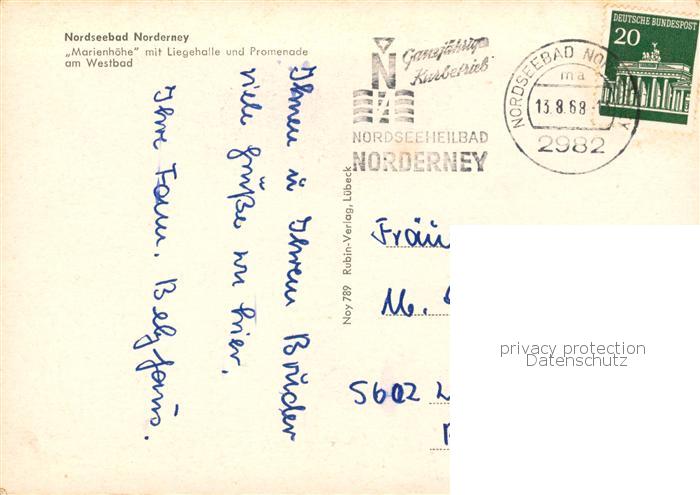 Nordseebad Norderney
„Marienhöhe" mit Liegehalle und Promenade
am Westbad
Ganzjährig
Kurbetrieb
N
NORDSEEHEILBAD
NORDERNEY
NORDSEEBAD NO
ma
13.8.68-1
2982
DEUTSCHE BUNDESPOST
20
Ihnen u Ihrem Brüder
viele Grüße von hier.
Ihre Fam.
Noy 789 Rubin-Verlag, Lübeck
Fräu
M.
5602
privacy protection
Datenschutz